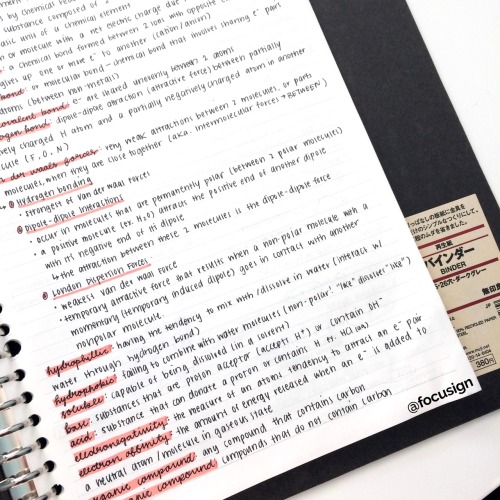 by chemical rea
substance composed of
basic unit of a chemical element
or molecule with a net electric charge due
: a chemical bond formed between 2 ions with opposite c
gives up one or more e⁻ to another (cation/anion)
bond: or molecular bond – chemical bond that involves sharing e⁻ pair
atoms (between non-metal)
covalent bond: e⁻ are shared unevenly between 2 atoms
ogen bond: dipole-dipole attraction (attractive force) between partially
vely charged H atom and a partially negatively charged atom in another
cule (F, O, N)
n der waals forces: very weak attractions between 2 molecules, or parts
molecules, when they are close together (a.k.a. intermolecular forces → BETWEEN)
① Hydrogen bonding
• strongest of van der waal forces
② Dipole-dipole interactions
• occur in molecules that are permanently polar (between 2 polar molecules)
• a positive molecule (ex. H₂O) attracts the positive end of another dipole
with its negative end of its dipole
↳ the attraction between these 2 molecules is the dipole-dipole force
③ London Dispersion Forces
• weakest van der waal force
• temporary attractive force that results when a non-polar molecule with a
momentary (temporary induced dipole) goes in contact with another
nonpolar molecule.
hydrophillic: having the tendency to mix with/dissolve in water (interact w/
water through hydrogen bond)
hydrophobic: failing to combine with water molecules (non-polar! "like" dissolves "like")
soluble: capable of being dissolved (in a solvent)
base: substances that are proton acceptor (accepts H⁺) or contain OH⁻
acid: substance that can donate a proton or contains H⁺ ex. HCl (aq)
electronegativity: the measure of an atoms tendency to attract an e⁻ pair
electron affinity: the amount of energy released when an e⁻ is added to
a neutral atom/molecule in gaseous state
organic compound: any compound that contains carbon
anic compound: compounds that do not contain carbon
@focusign
再生紙
バインダー
BINDER
5・26穴・ダークグレー
無印良
RECYCLED PAPER
380円